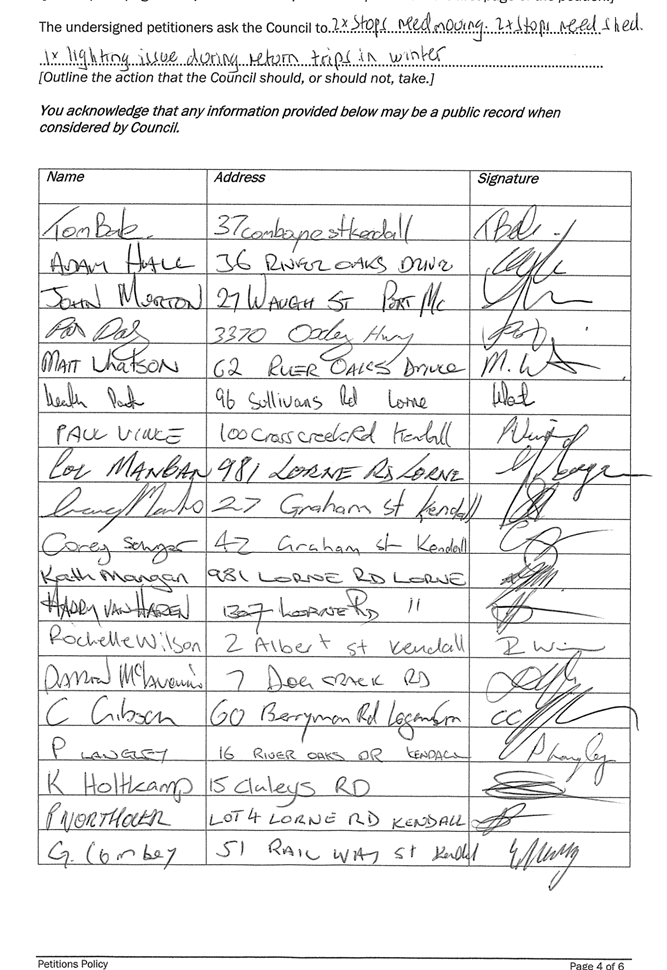 The undersigned petitioners ask the Council to 2x stops need moving. 2x stops need shed.
1x lighting issue during return trips in winter
[Outline the action that the Council should, or should not, take.]
You acknowledge that any information provided below may be a public record when
considered by Council.
Name Address Signature
Tom Bale 37 comboyne st kendall
ADAM HALL 36 RIVER OAKS DRIVE
JOHN MORTON 27 WAUGH ST PORT MC
3370 Oxley Hwy
MATT WATSON 62 RIVER OAKS DRIVE M. W
Heath 96 Sullivans Rd Lorne
PAUL VINCE 100 Cross creek Rd Kendall
COL MANGAN 981 LORNE RD LORNE
27 Graham st Kendall
Corey 42 Graham st Kendall
Kath Mangan 981 LORNE RD LORNE
HARRY VAN HAREN 1307 LORNE RD "
Rochelle Wilson 2 Albert st Kendall R Wi
7 DOG CRACK RD
C Gibson 60 Berryman Rd
P LANGLEY 16 RIVER OAKS DR KENDALL P Langley
K Holtkamp 15 Cluleys RD
P NORTHOVER LOT 4 LORNE RD KENDALL
G. 51 RAIL WAY st Kendal
Petitions Policy Page 4 of 6